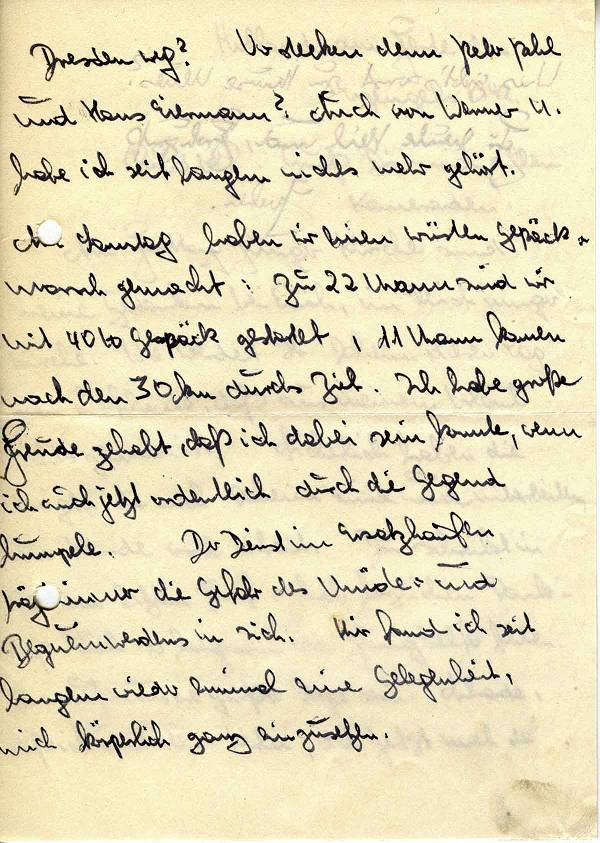 Dresden weg? Wo stecken denn Peter Pahl
und Hans Eiermann? Auch von Werner U.
habe ich seit langem nichts mehr gehört.
Am Samstag haben wir einen wüsten Gepäck-
marsch gemacht: Zu 22 Mann sind wir
mit 40 Gepäck gestartet, 11 Mann kamen
nach den 30 km durchs Ziel. Ich habe große
Freude gehabt, daß ich dabei sein konnte, wenn
ich auch jetzt ordentlich durch die Gegend
humpele. Der Dienst im Ersatzhaufen
trägt immer die Gefahr des Müde- und
Bequemwerdens in sich. Hier fand ich seit
langem wieder einmal eine Gelegenheit,
mich körperlich ganz einzusetzen.